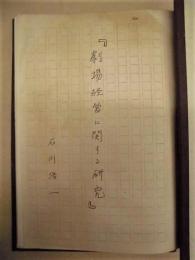 『劇場経営に関する研究』
石川